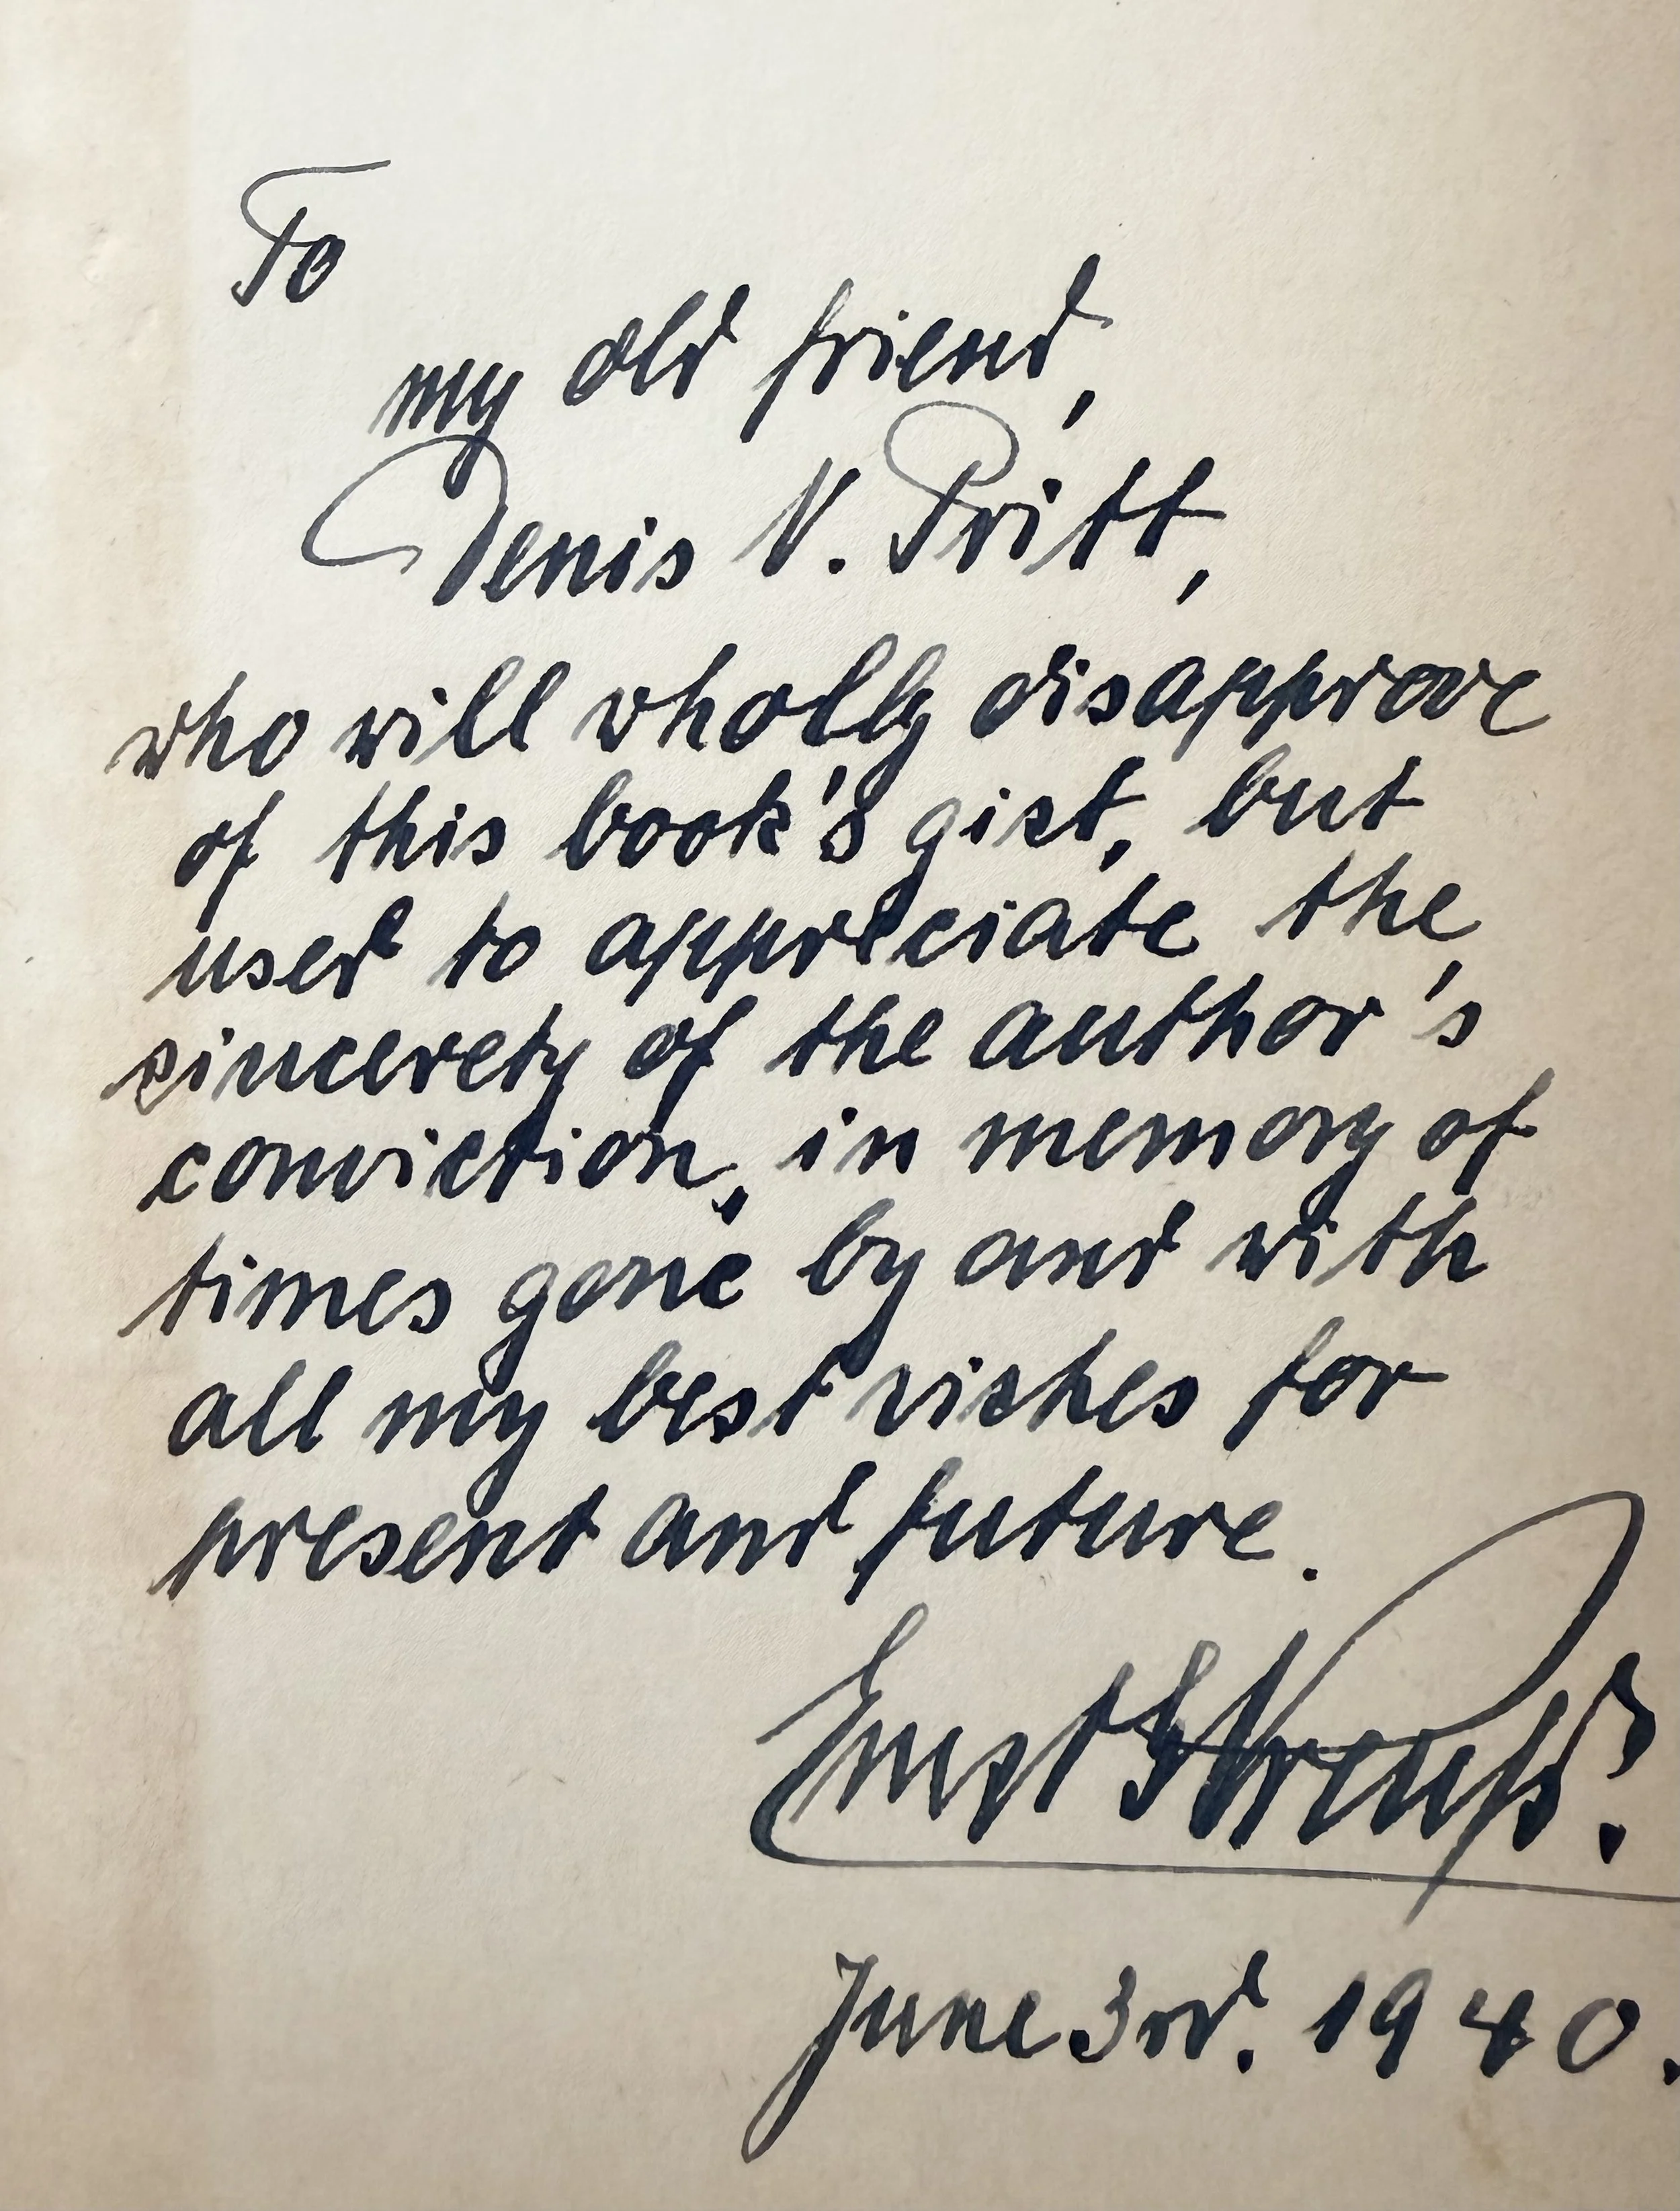 To
my old friend,
Denis N. Pritt,
who will wholly disapprove
of this book's gist, but
used to appreciate the
sincerety of the author's
conviction, in memory of
times gone by and with
all my best wishes for
present and future.
Ernst
June 3rd. 1940.